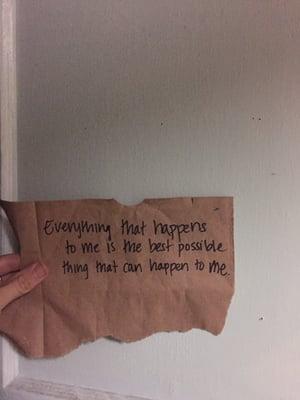 Everything that happens
to me is the best possible
thing that can happen to me.